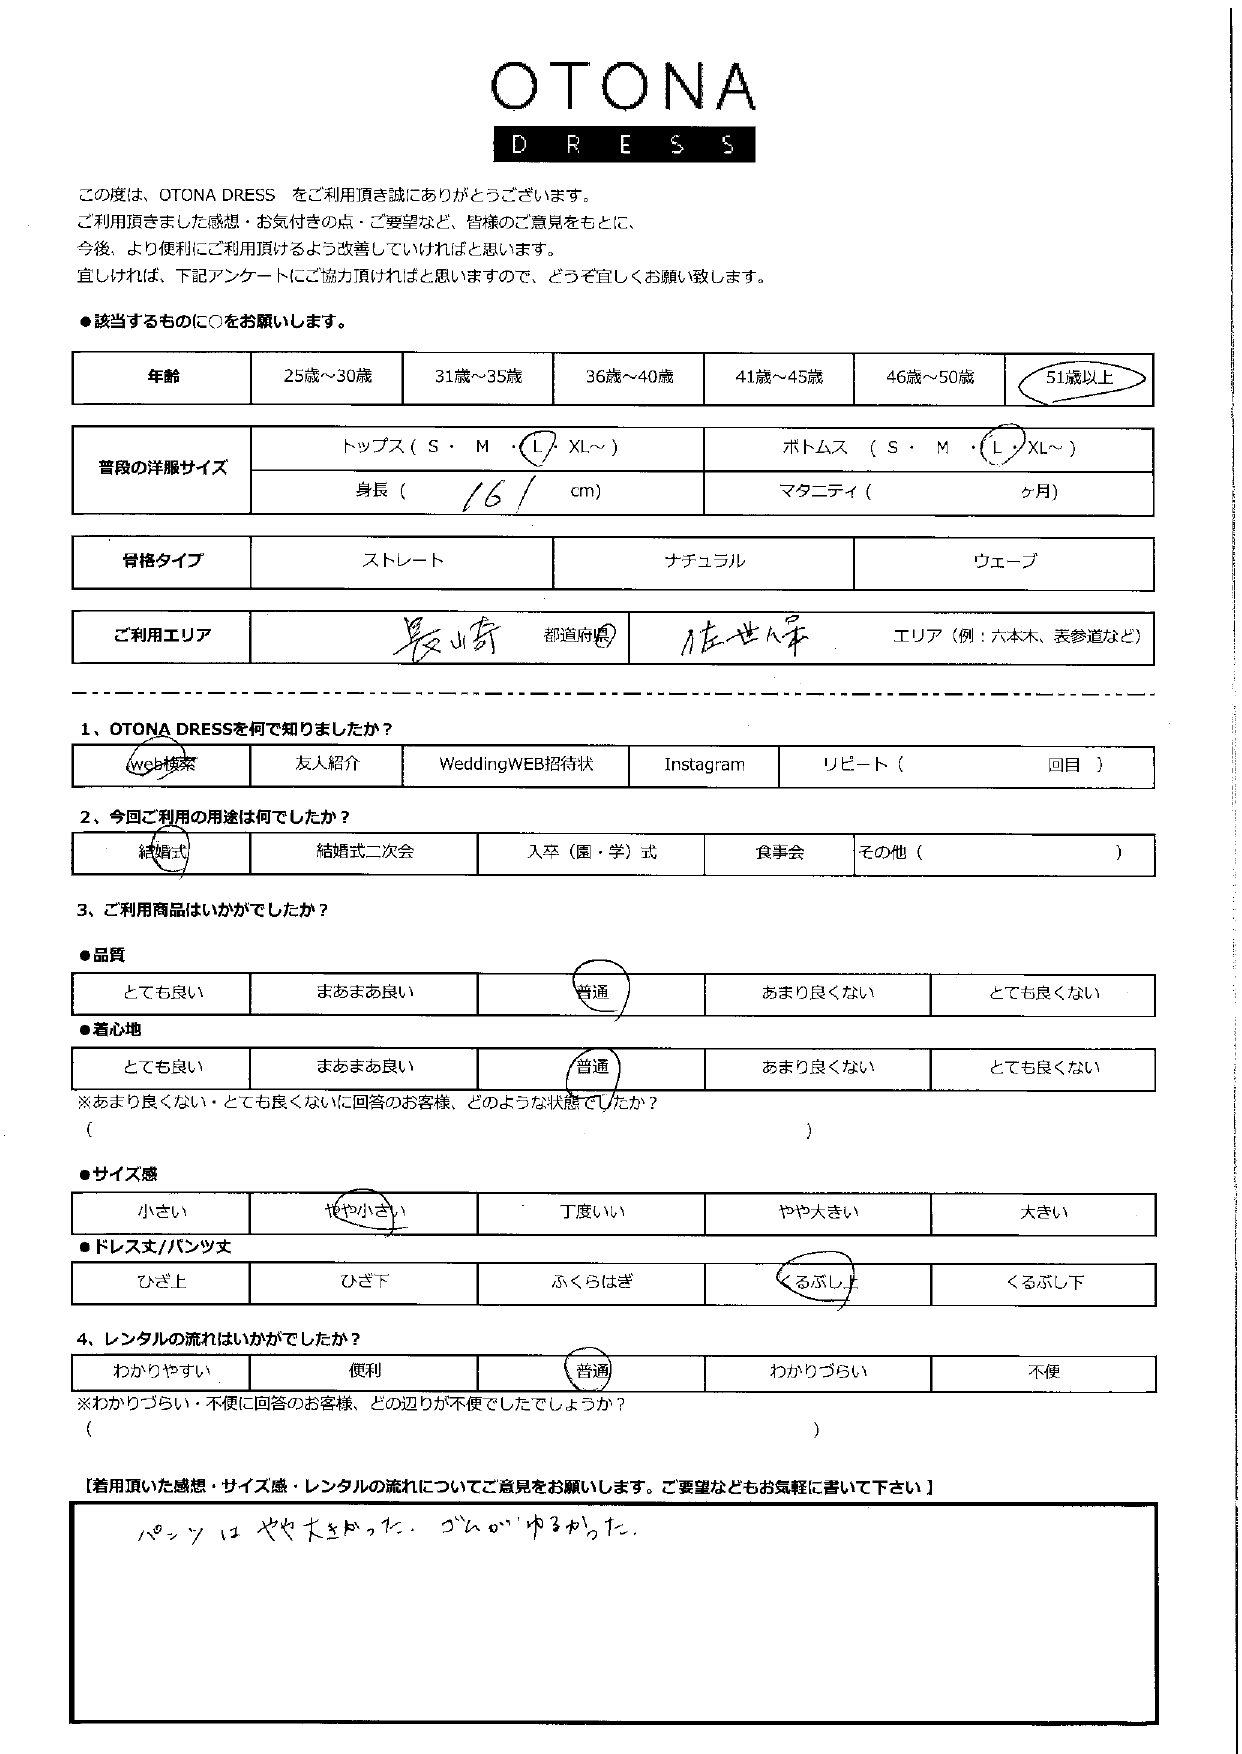 OTONA
DRESS
この度は、OTONA DRESS　をご利用頂き誠にありがとうございます。
ご利用頂きました感想・お気付きの点・ご要望など、皆様のご意見をもとに、
今後、より便利にご利用頂けるよう改善していければと思います。
宜しければ、下記アンケートにご協力頂ければと思いますので、どうぞ宜しくお願い致します。
●該当するものに○をお願いします。
年齢 25歳～30歳 31歳～35歳 36歳～40歳 41歳～45歳 46歳～50歳 51歳以上
普段の洋服サイズ トップス ( S ・ M ・ L ・ XL～ ) ボトムス ( S ・ M ・ L ・ XL～ )
身長 ( 161 cm) マタニティ ( ヶ月)
骨格タイプ ストレート ナチュラル ウェーブ
ご利用エリア 長崎 都道府県 佐世保 エリア（例：六本木、表参道など）
1、OTONA DRESSを何で知りましたか？
web検索 友人紹介 WeddingWEB招待状 Instagram リピート ( 回目 )
2、今回ご利用の用途は何でしたか？
結婚式 結婚式二次会 入卒（園・学）式 食事会 その他 ( )
3、ご利用商品はいかがでしたか？
●品質
とても良い まあまあ良い 普通 あまり良くない とても良くない
●着心地
とても良い まあまあ良い 普通 あまり良くない とても良くない
※あまり良くない・とても良くないに回答のお客様、どのような状態でしたか？
( )
●サイズ感
小さい やや小さい 丁度いい やや大きい 大きい
●ドレス丈/パンツ丈
ひざ上 ひざ下 ふくらはぎ くるぶし上 くるぶし下
4、レンタルの流れはいかがでしたか？
わかりやすい 便利 普通 わかりづらい 不便
※わかりづらい・不便に回答のお客様、どの辺りが不便でしたでしょうか？
( )
【着用頂いた感想・サイズ感・レンタルの流れについてご意見をお願いします。ご要望などもお気軽に書いて下さい 】
パンツは やや大きかった. ゴムがゆるかった.